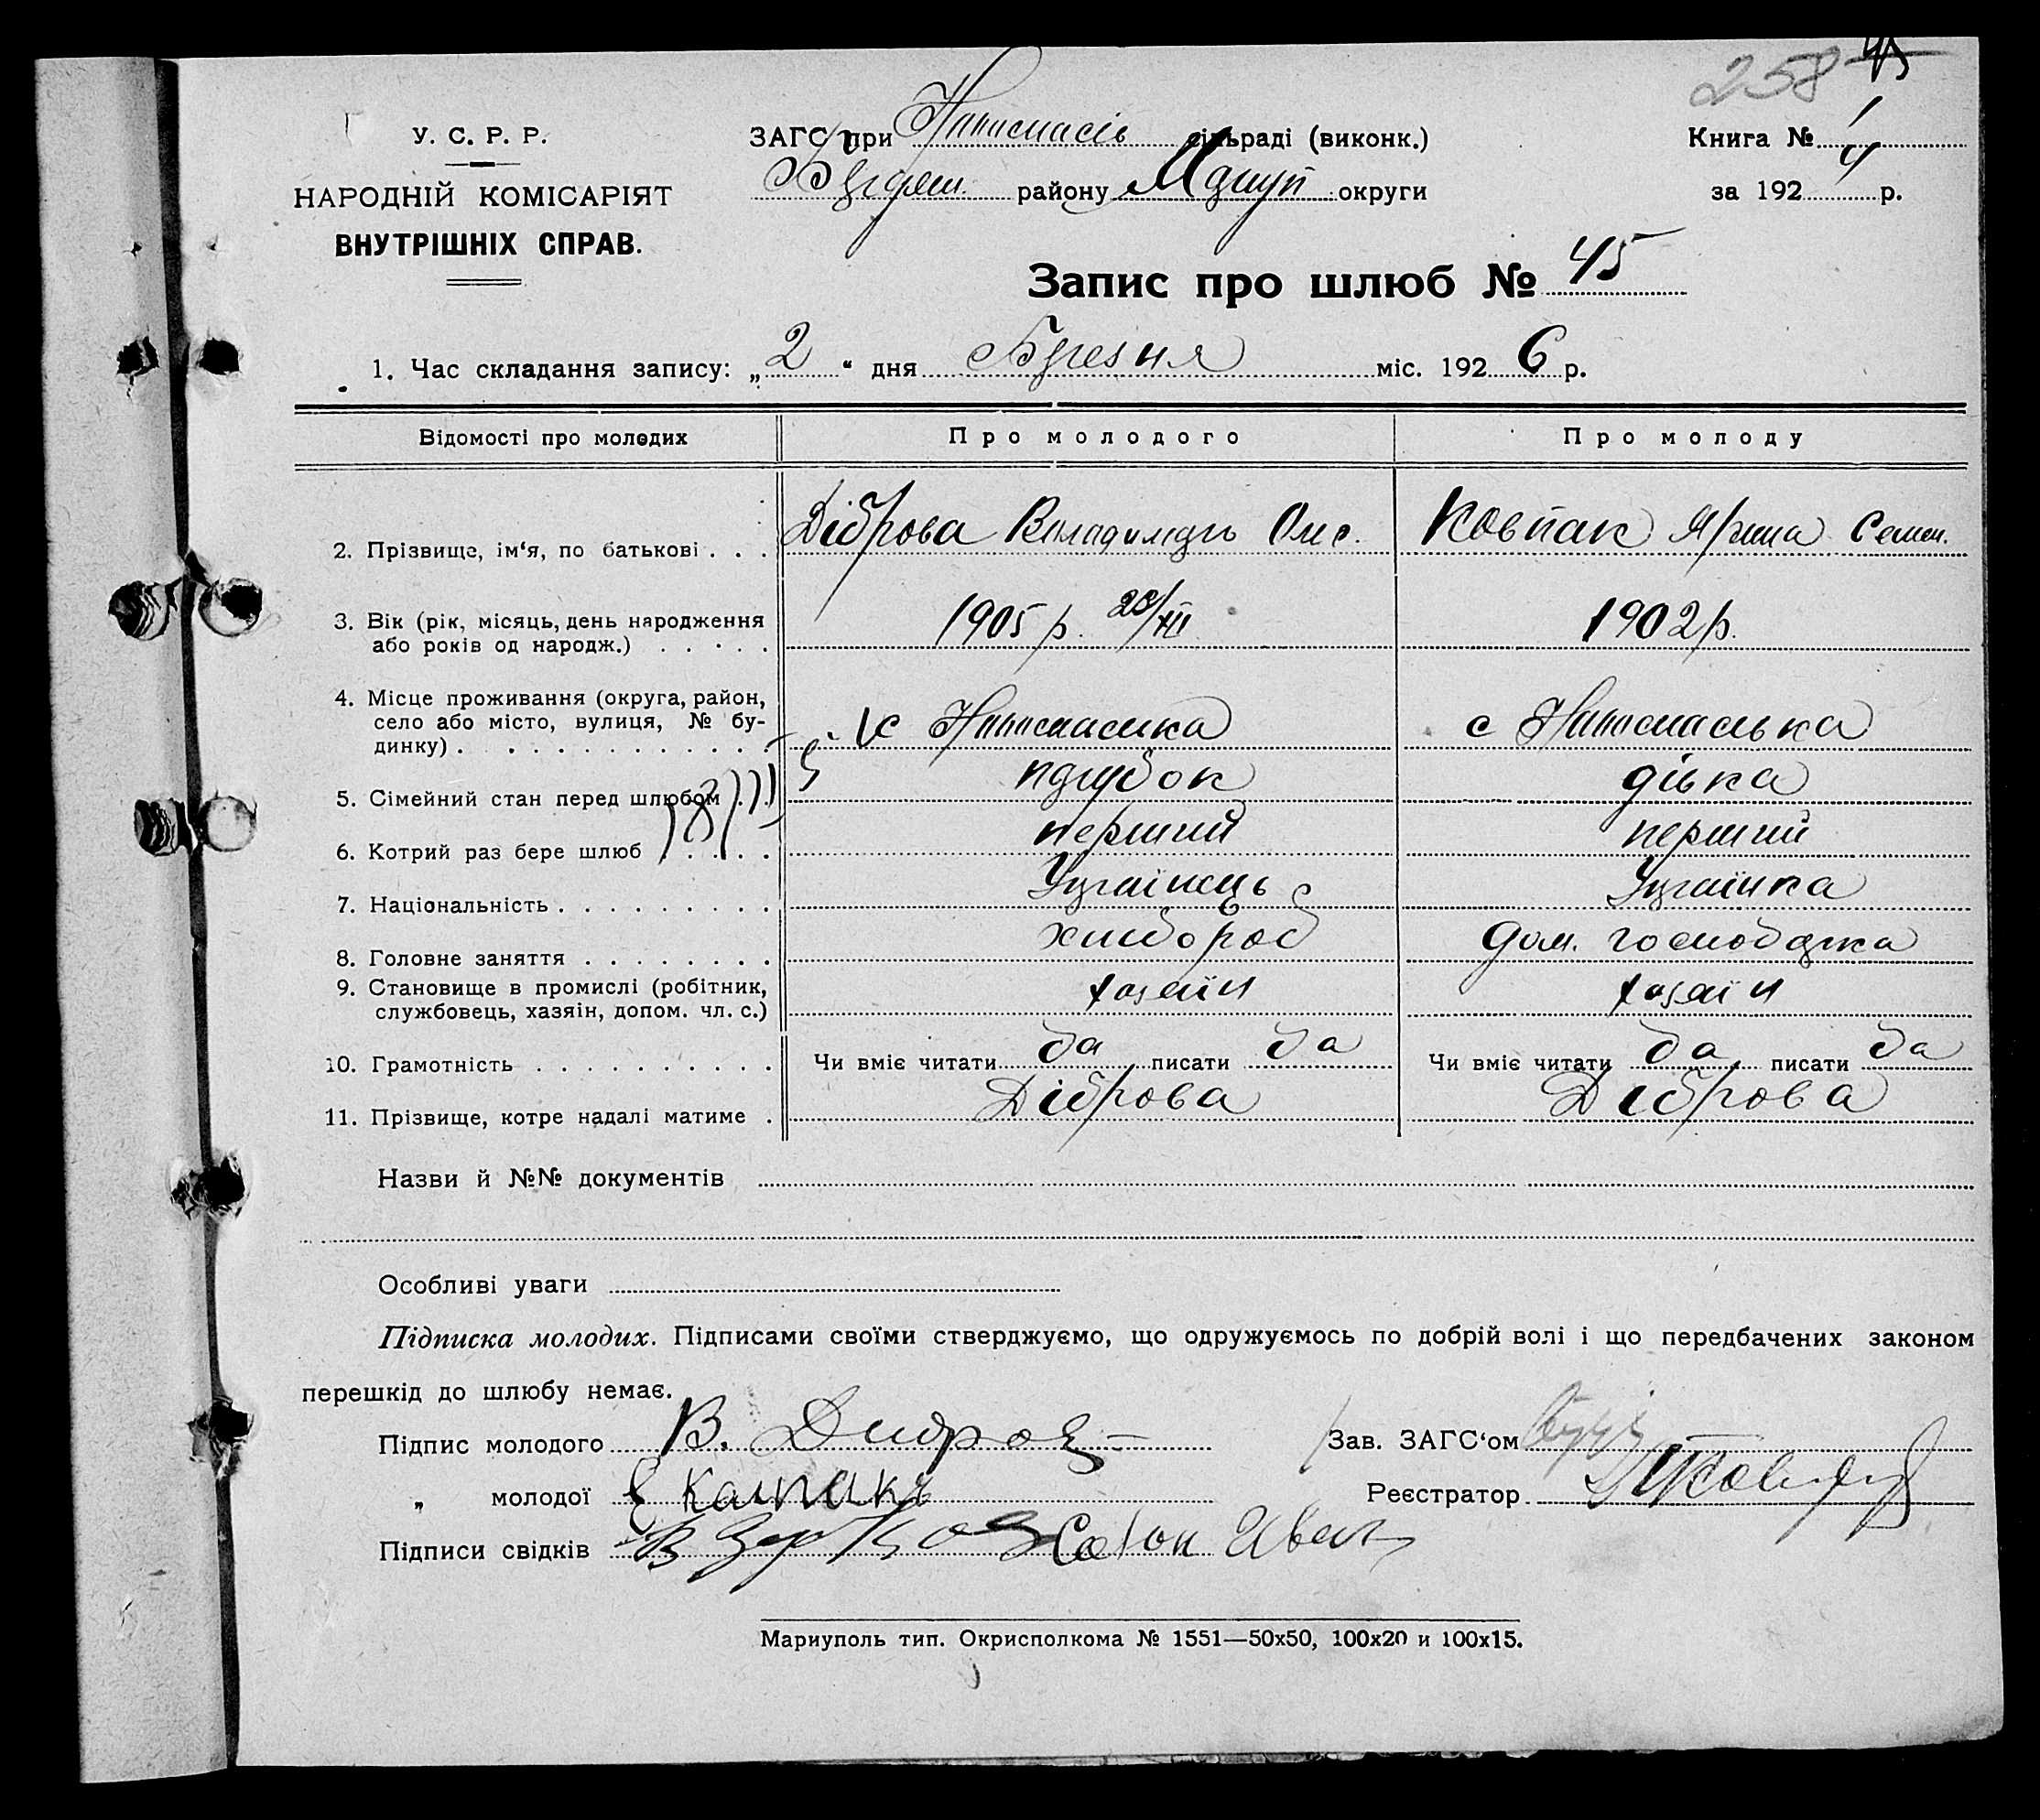 258 45
У. С. Р. Р.
НАРОДНІЙ КОМІСАРІЯТ
ВНУТРІШНІХ СПРАВ.
ЗАГС при сільраді (виконк.)
району округи
Книга № 1
за 192 4 р.
Запис про шлюб № 45
1. Час складання запису: „ 2 “ дня Березня міс. 192 6 р.
Відомості про молодих Про молодого Про молоду
2. Прізвище, ім‘я, по батькові . . . Діброва Владимир Ковпак Ярина Семен.
3. Вік (рік, місяць, день народження
або років од народж.) . . . . . 1905 р. 1902 р.
4. Місце проживання (округа, район,
село або місто, вулиця, № бу-
динку) . . . . . . . . . . . . с с
5. Сімейний стан перед шлюбом . . парубок дівка
6. Котрий раз бере шлюб . . . . . перший перший
7. Національність . . . . . . . . . Українець Українка
8. Головне заняття . . . . . . . . хлібороб дом. господарка
9. Становище в промислі (робітник,
службовець, хазяін, допом. чл. с.) хазаїн хазаїн
10. Грамотність . . . . . . . . . . Чи вміє читати да писати да Чи вміє читати да писати да
11. Прізвище, котре надалі матиме . Діброва Діброва
Назви й №№ документів
Особливі уваги
Підписка молодих. Підписами своїми стверджуємо, що одружуємось по добрій волі і що передбачених законом
перешкід до шлюбу немає.
Підпис молодого В. Зав. ЗАГС‘ом
„ молодої Реєстратор
Підписи свідків
Мариуполь тип. Окрисполкома № 1551—50х50, 100х20 и 100х15.